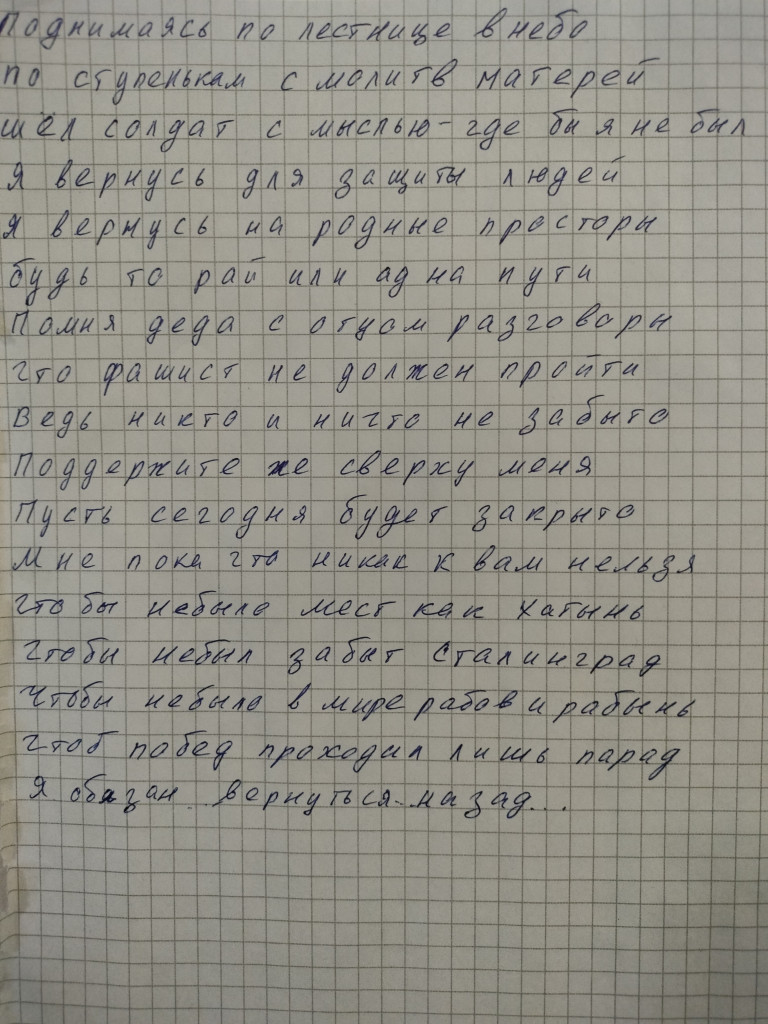 Поднимаясь по лестнице в небо
по ступенькам с молитв матерей
шёл солдат с мыслью - где бы я не был
Я вернусь для защиты людей
Я вернусь на родные просторы
будь то рай или ад на пути
Помня деда с отцом разговоры
что фашист не должен пройти
Ведь никто и ничто не забыто
Поддержите же сверху меня
Пусть сегодня будет закрыто
Мне пока что никак к вам нельзя
что бы небыло мест как Хатынь
Чтобы небыл забыт Сталинград
Чтобы небыло в мире рабов и рабынь
Чтоб побед проходил лишь парад
Я обязан .. вернуться .. назад...